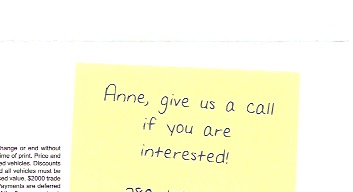 hange or end without
ime of print. Price and
ed vehicles. Discounts
d all vehicles must be
sed value. $2000 trade
Payments are deferred
Anne, give us a call
if you are
interested!